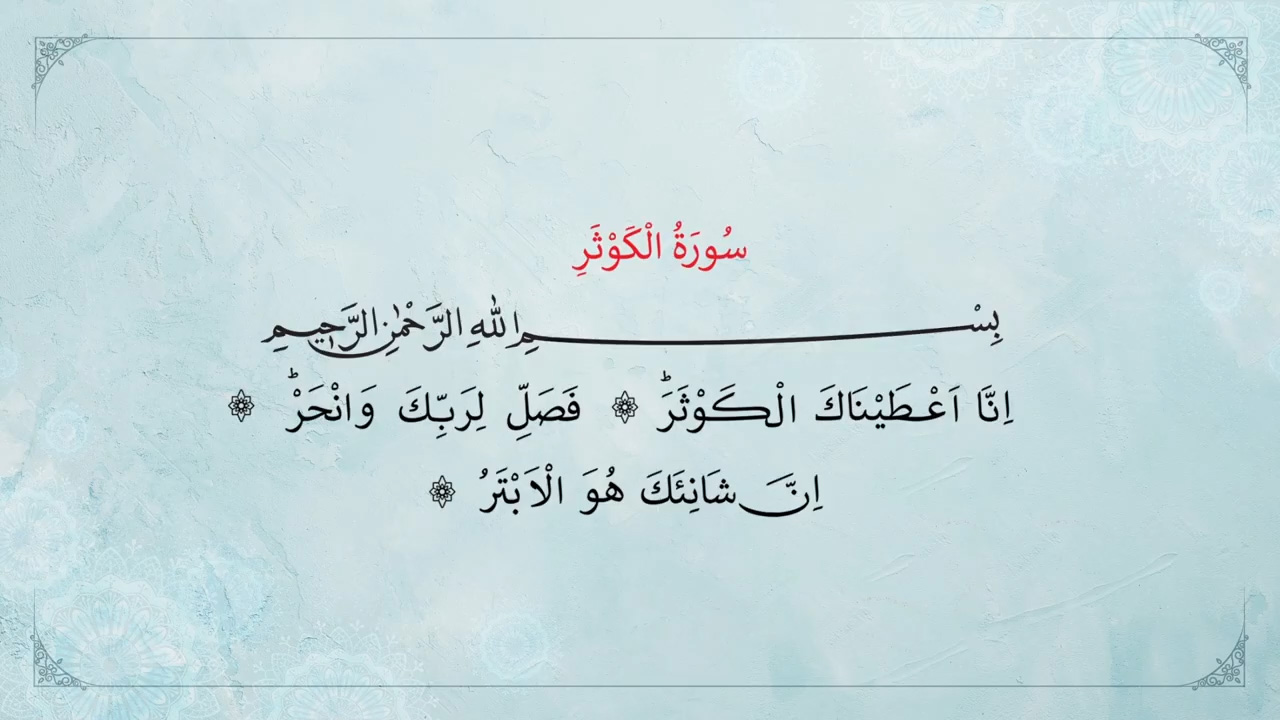 سُورَةُ الْكَوْثَرِ
بِسْمِ اللهِ الرَّحْمٰنِ الرَّحِيمِ
اِنَّا اَعْطَيْنَاكَ الْكَوْثَرَؕ ۞ فَصَلِّ لِرَبِّكَ وَانْحَرْؕ ۞
اِنَّ شَانِئَكَ هُوَ الْاَبْتَرُ ۞